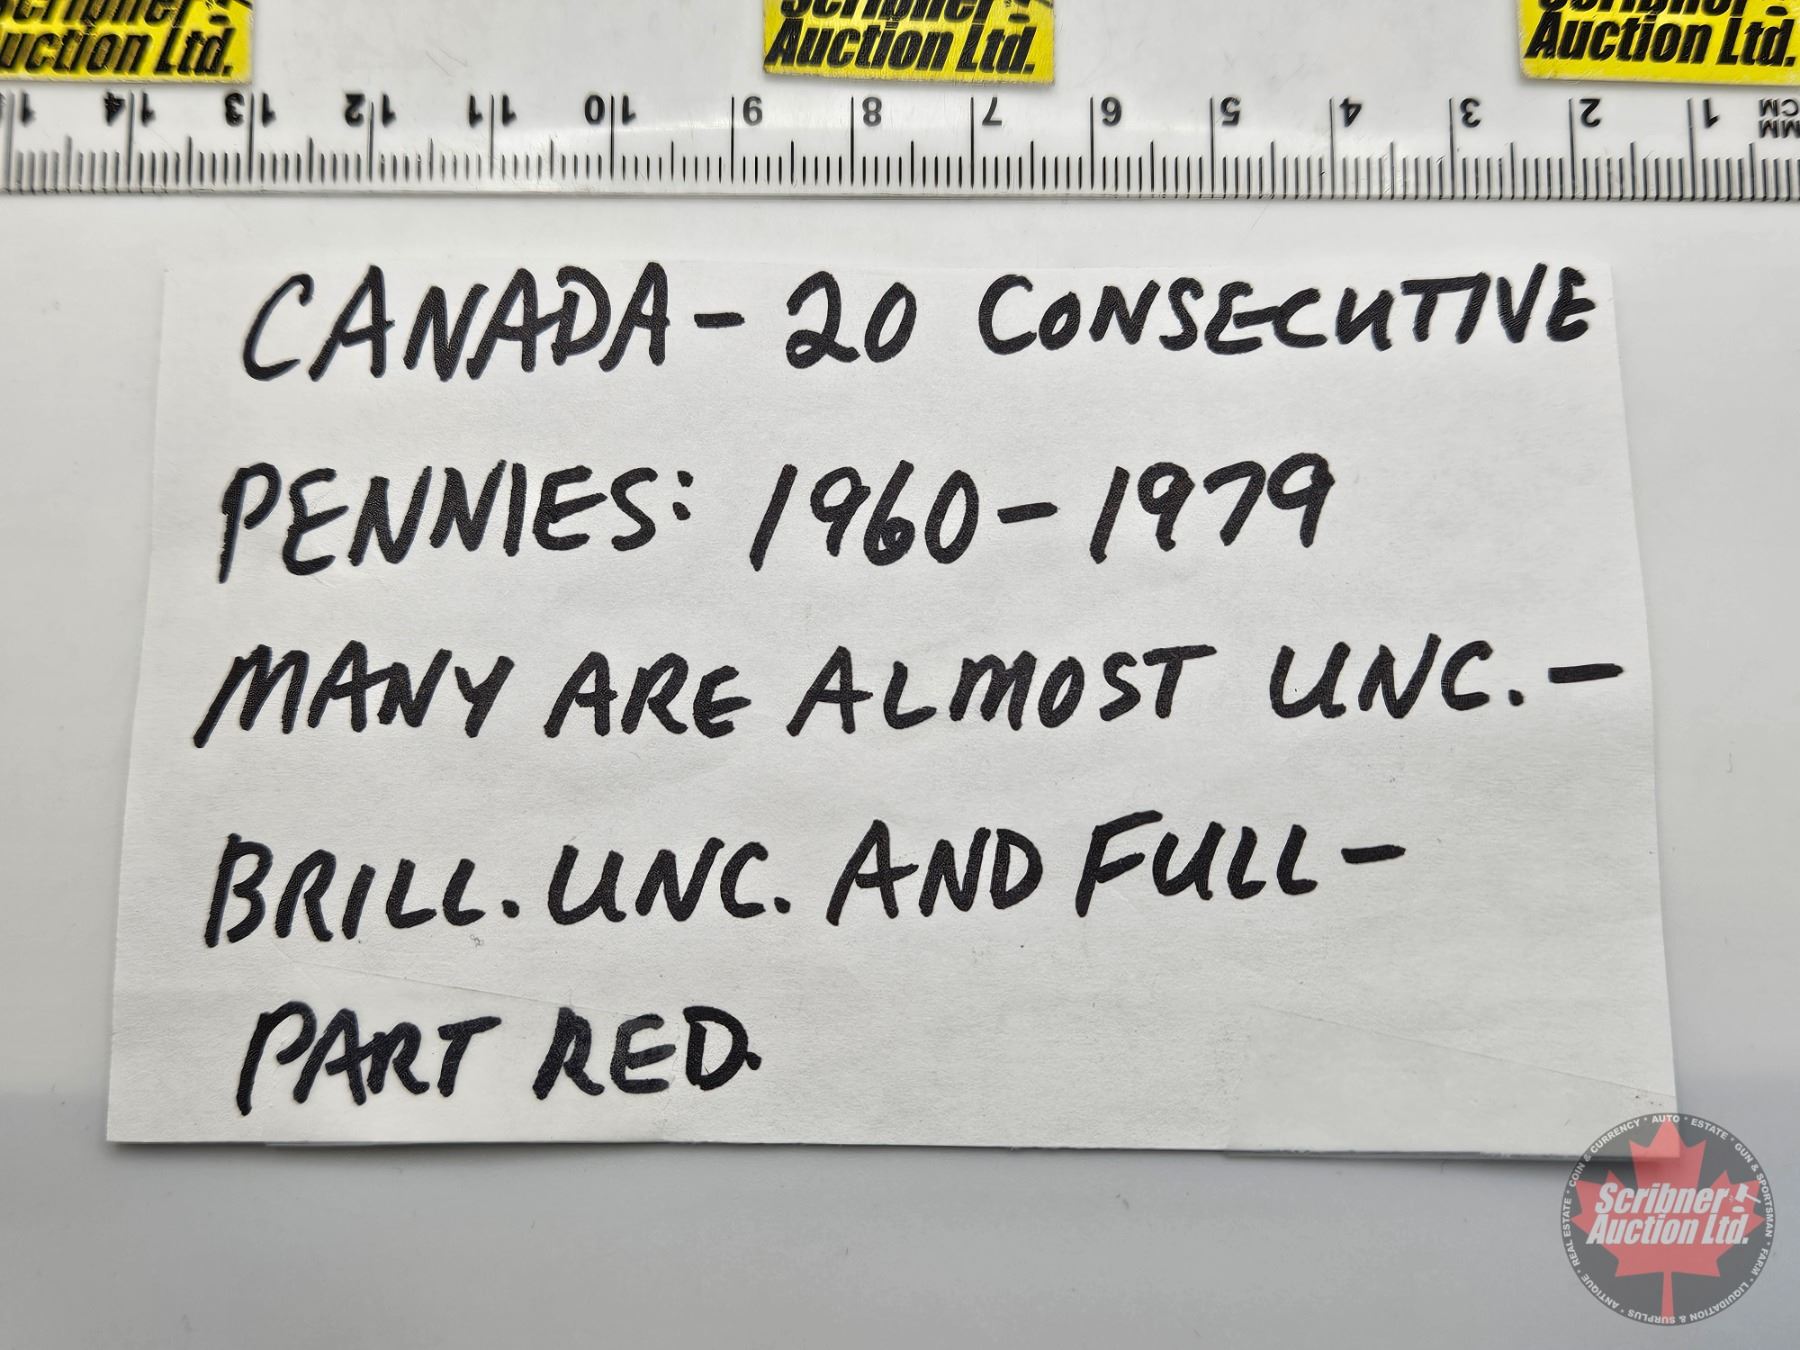 Scribner Auction Ltd.
Scribner Auction Ltd.
Scribner Auction Ltd.
14 13 12 11 10 9 8 7 6 5 4 3 2 1 CM
MM
CANADA - 20 CONSECUTIVE
PENNIES: 1960 - 1979
MANY ARE ALMOST UNC. -
BRILL. UNC. AND FULL -
PART RED.
COIN & CURRENCY • AUTO • ESTATE • GUN & SPORTSMAN • FARM • LIQUIDATION & SURPLUS • ANTIQUE • REAL ESTATE
Scribner
Auction Ltd.